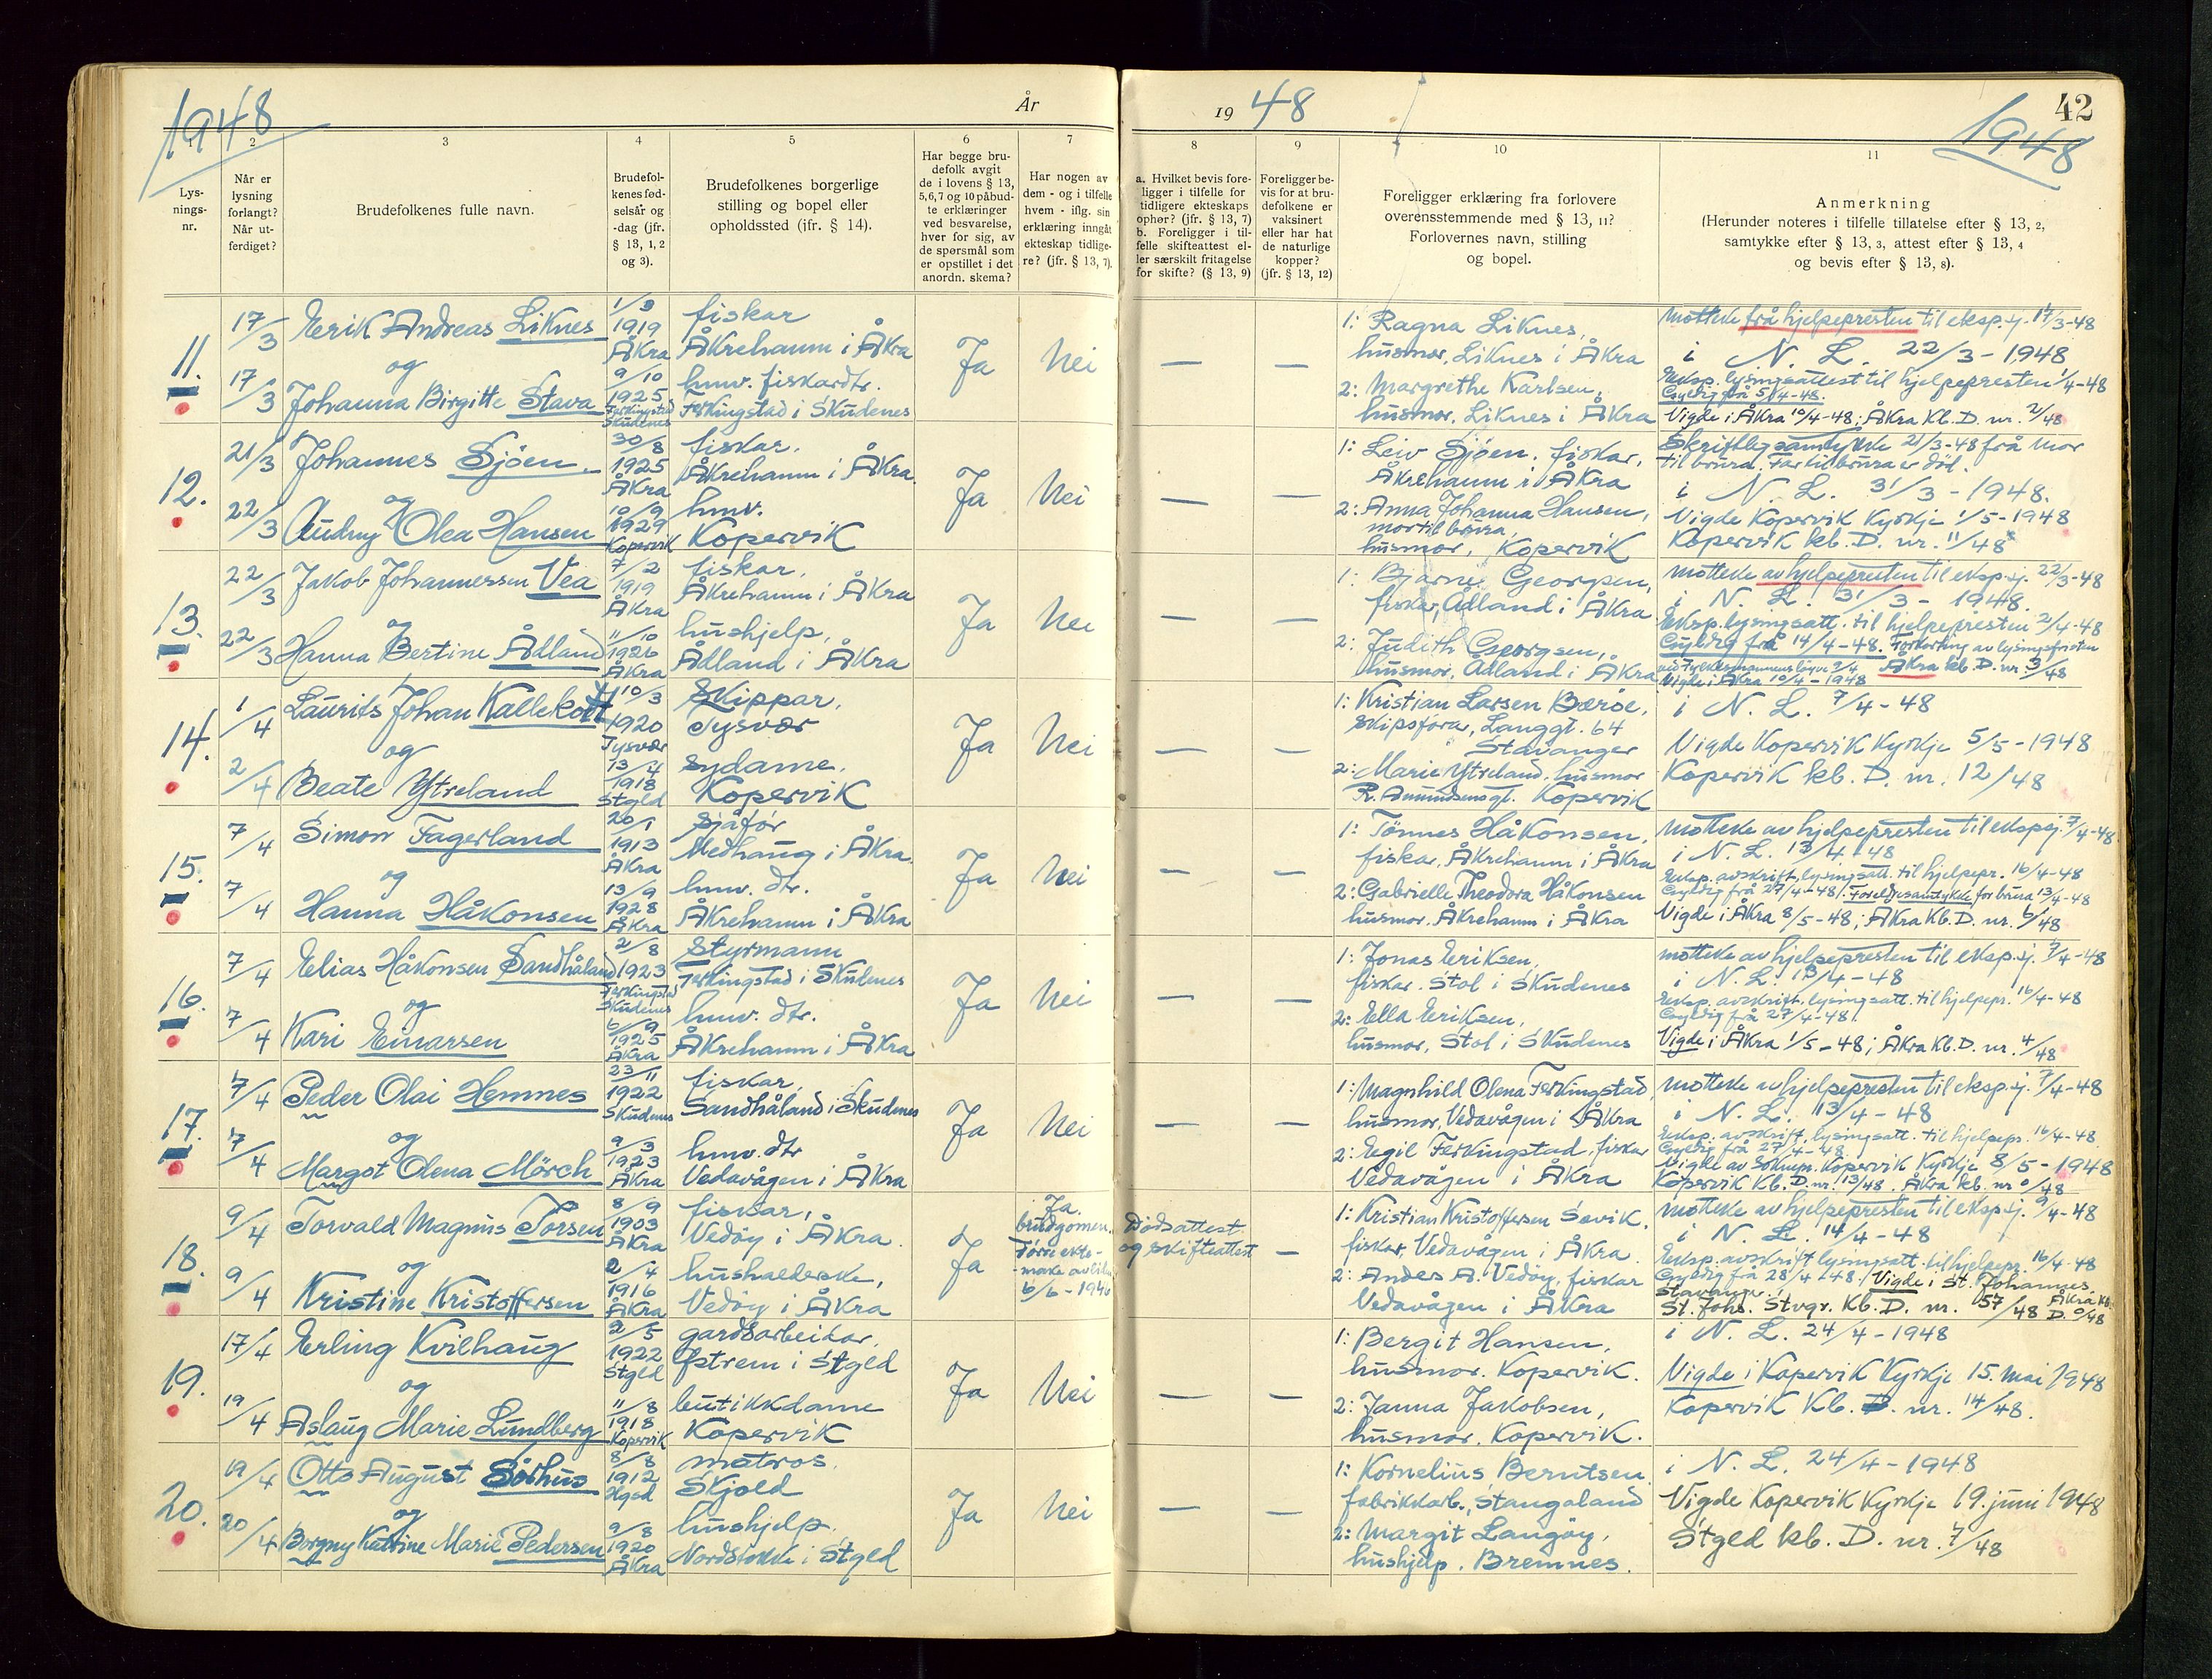 1948
År
1948
42
1948
1
Lys-
nings-
nr.
2
Når er
lysning
forlangt?
Når ut-
ferdiget?
3
Brudefolkenes fulle navn.
4
Brudefol-
kenes fød-
selsår og
-dag (jfr.
§ 13, 1, 2
og 3).
5
Brudefolkenes borgerlige
stilling og bopel eller
opholdssted (jfr. § 14).
6
Har begge bru-
defolk avgit
de i lovens § 13,
5,6,7 og 10 påbud-
te erklæringer
ved besvarelse,
hver for sig, av
de spørsmål som
er opstillet i det
anordn. skema?
7
Har nogen av
dem - og i tilfelle
hvem - iflg. sin
erklæring inngåt
ekteskap tidlige-
re? (jfr. § 13, 7).
8
a. Hvilket bevis fore-
ligger i tilfelle for
tidligere ekteskaps
ophør? (jfr. § 13, 7)
b. Foreligger i til-
felle skifteattest el-
ler særskilt fritagelse
for skifte? (§ 13, 9)
9
Foreligger be-
vis for at bru-
defolkene er
vaksinert
eller har hat
de naturlige
kopper?
(jfr. § 13, 12)
10
Foreligger erklæring fra forlovere
overensstemmende med § 13, 11?
Forlovernes navn, stilling
og bopel.
11
Anmerkning
(Herunder noteres i tilfelle tillatelse efter § 13, 2,
samtykke efter § 13, 3, attest efter § 13, 4
og bevis efter § 13, 8).
11.
17/3
17/3
Erik Andreas Liknes
og
Johanna Birgitte Stava
1/3
1919
Åkra
9/10
1925
Ferkingstad
Skudenes
fiskar
Åkrehamn i Åkra
hmv. fiskardtr.
Ferkingstad i Skudenes
Ja
Nei
—
—
1: Ragna Liknes,
husmor, Liknes i Åkra
2: Margrethe Karlsen,
husmor, Liknes i Åkra
Motteke frå hjelpepresten til eksp.j. 17/3-48
i N. L. 22/3-1948
Eksp. lysingsattest til hjelpepresten 1/4-48
Gyldig frå 5/4-48.
Vigde i Åkra 10/4-48; Åkra Kb. D. nr. 2/48
12.
21/3
22/3
Johannes Sjöen
og
Audny Olea Hansen
30/8
1925
Åkra
10/9
1929
Kopervik
fiskar.
Åkrehamn i Åkra.
hmv.
Kopervik
Ja
Nei
—
—
1: Leiv Sjöen, fiskar,
Åkrehamn i Åkra
2: Anna Johanna Hansen,
mor til brura,
husmor, Kopervik
Skriftleg samtykke 21/3-48 frå mor
til brura. Far til brura er död.
i N. L. 31/3-1948.
Vigde Kopervik Kyrkje 1/5-1948
Kopervik kb. D. nr. 11/48
13.
22/3
22/3
Jakob Johannessen Vea
og
Hanna Bertine Ådland
7/2
1919
Åkra
11/10
1926
Åkra
fiskar,
Åkrehamn i Åkra
hushjelp,
Ådland i Åkra
Ja
Nei
—
—
1: Bjarne Georgsen,
fiskar, Ådland i Åkra
2: Judith Georgsen,
husmor, Ådland i Åkra
Motteke av hjelpepresten til eksp.j. 22/3-48
i N. L. 31/3-1948.
Eksp. lysingsatt. til hjelpepresten 2/4-48
Gyldig frå 14/4-48. Forkorting av lysingsfristen
ved Fylkesmannens 9/4 Åkra kb. D. nr. 3/48
Vigde i Åkra 10/4-1948
14.
1/4
2/4
Laurits Johan Kallekodt
og
Beate Ytreland
10/3
1920
Tysvær
13/4
1918
Stgld
Skippar,
Tysvær
sydame.
Kopervik
Ja
Nei
—
—
1: Kristian Larsen Beröe,
skipsföra, Langgt. 64
Stavanger
2: Marie Ytreland, husmor
R. Amundsensgt. Kopervik
i N. L. 7/4-48
Vigde Kopervik Kyrkje 5/5-1948
Kopervik kb. D. nr. 12/48
15.
7/4
7/4
Simon Fagerland
og
Hanna Håkonsen
20/1
1913
Åkra
13/9
1928
Åkra
sjåför
Medhaug i Åkra
hmv. dtr.
Åkrehamn i Åkra
Ja
Nei
—
—
1: Tönnes Håkonsen,
fiskar, Åkrehamn i Åkra
2: Gabrielle Theodora Håkonsen
husmor, Åkrehamn i Åkra
Motteke av hjelpepresten til eksp.j. 7/4-48.
i N. L. 13/4-48
Eksp. avskrift, lysingsatt. til hjelpepr. 16/4-48
Gyldig frå 27/4-48/. Foreldresamtykke for brura 13/4-48
Vigde i Åkra 8/5-48; Åkra Kb. D. nr. 6/48
16.
7/4
7/4
Elias Håkonsen Sandhåland
og
Kari Einarsen
2/8
1923
Ferkingstad
Skudenes
6/9
1925
Åkra
Styrmann
Ferkingstad i Skudenes
hmv. dtr.
Åkrehamn i Åkra
Ja
Nei
—
—
1: Jonas Eriksen,
fiskar, Stol i Skudenes
2: Ella Eriksen,
husmor, Stol i Skudenes
motteke av hjelpepresten til eksp.j. 7/4-48
i N. L. 13/4-48
Eksp. avskrift. lysingsatt. til hjelpepr. 16/4-48
Gyldig frå 27/4-48.
Vigde i Åkra 1/5-48; Åkra Kb. D. nr. 4/48
17.
7/4
7/4
Peder Olai Hemnes
og
Margot Olena Mörch
23/11
1922
Skudenes
9/3
1923
Åkra
fiskar,
Sandhåland i Skudenes
hmv. dtr
Vedavågen i Åkra
Ja
Nei
—
—
1: Magnhild Olena Ferkingstad,
husmor, Vedavågen i Åkra
2: Egil Ferkingstad, fiskar
Vedavågen i Åkra
motteke av hjelpepresten til eksp.j. 7/4-48
i N. L. 13/4-48
Eksp. avskrift, lysingsatt. til hjelpepr. 16/4-48
Gyldig frå 27/4-48
Vigde av Soknepr. Kopervik Kyrkje 8/5-1948
Kopervik Kb. D. nr. 13/48. Åkra kb. nr 0/48
18.
9/4
9/4
Torvald Magnus Torsen
og
Kristine Kristoffersen
8/9
1903
Åkra
2/4
1916
Åkra
fiskar,
Vedöy i Åkra
hushalderske,
Vedöy i Åkra
Ja
Ja.
brudgomen.
Förre ekte-
-make avliden
6/6-1946
Dödsattest
og skifteattest
—
1: Kristian Kristoffersen Sævik,
fiskar, Vedavågen i Åkra
2: Anders A. Vedöy, fiskar
Vedavågen i Åkra
motteke av hjelpepresten til eksp.j. 9/4-48
i N. L. 14/4-48
Eksp. avskrift lysingsatt. til hjelpepr. 16/4-48
Gyldig frå 28/4-48/. Vigde i St. Johannes,
Stavanger.
St. Johs. Stvgr. Kb. D. nr. 57/48 Åkra Kb. D. 0/48
19.
17/4
19/4
Erling Kvilhaug
og
Aslaug Marie Lundberg
2/5
1922
Stgld
11/8
1918
Kopervik
gardsarbeidar,
Östrem i Stgld
butikkdame
Kopervik
Ja
Nei
—
—
1: Bergit Hansen,
husmor. Kopervik.
2: Janna Jakobsen,
husmor. Kopervik.
i N. L. 24/4-1948
Vigde i Kopervik Kyrkje 15. mai 1948
Kopervik Kb. D. nr. 14/48.
20.
19/4
20/4
Otto August Sörhus
og
Borgny Katrine Marie Pedersen
8/8
1912
9/8
1920
Åkra
matros.
Skjold
hushjelp.
Nordstokke i Stgld
Ja
Nei
—
—
1: Kornelius Berntsen
fabrikkarb., Stangaland
2: Margit Langöy,
hushjelp. Bremnes.
i N. L. 24/4-1948
Vigde Kopervik Kyrkje 19. juni 1948
Stgld kb. D. nr. 7/48